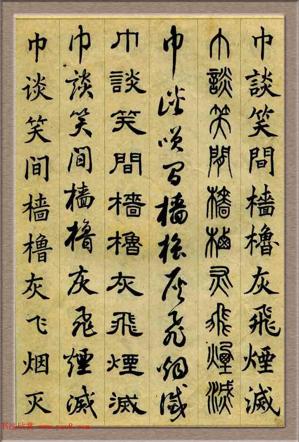 巾談笑間檣櫓灰飛煙滅
巾談笑間檣櫓灰飛煙滅
巾談笑間檣櫓灰飛烟滅
巾談笑間檣櫓灰飛煙滅
巾談笑間檣櫓灰飛煙滅
巾谈笑间樯橹灰飞烟灭